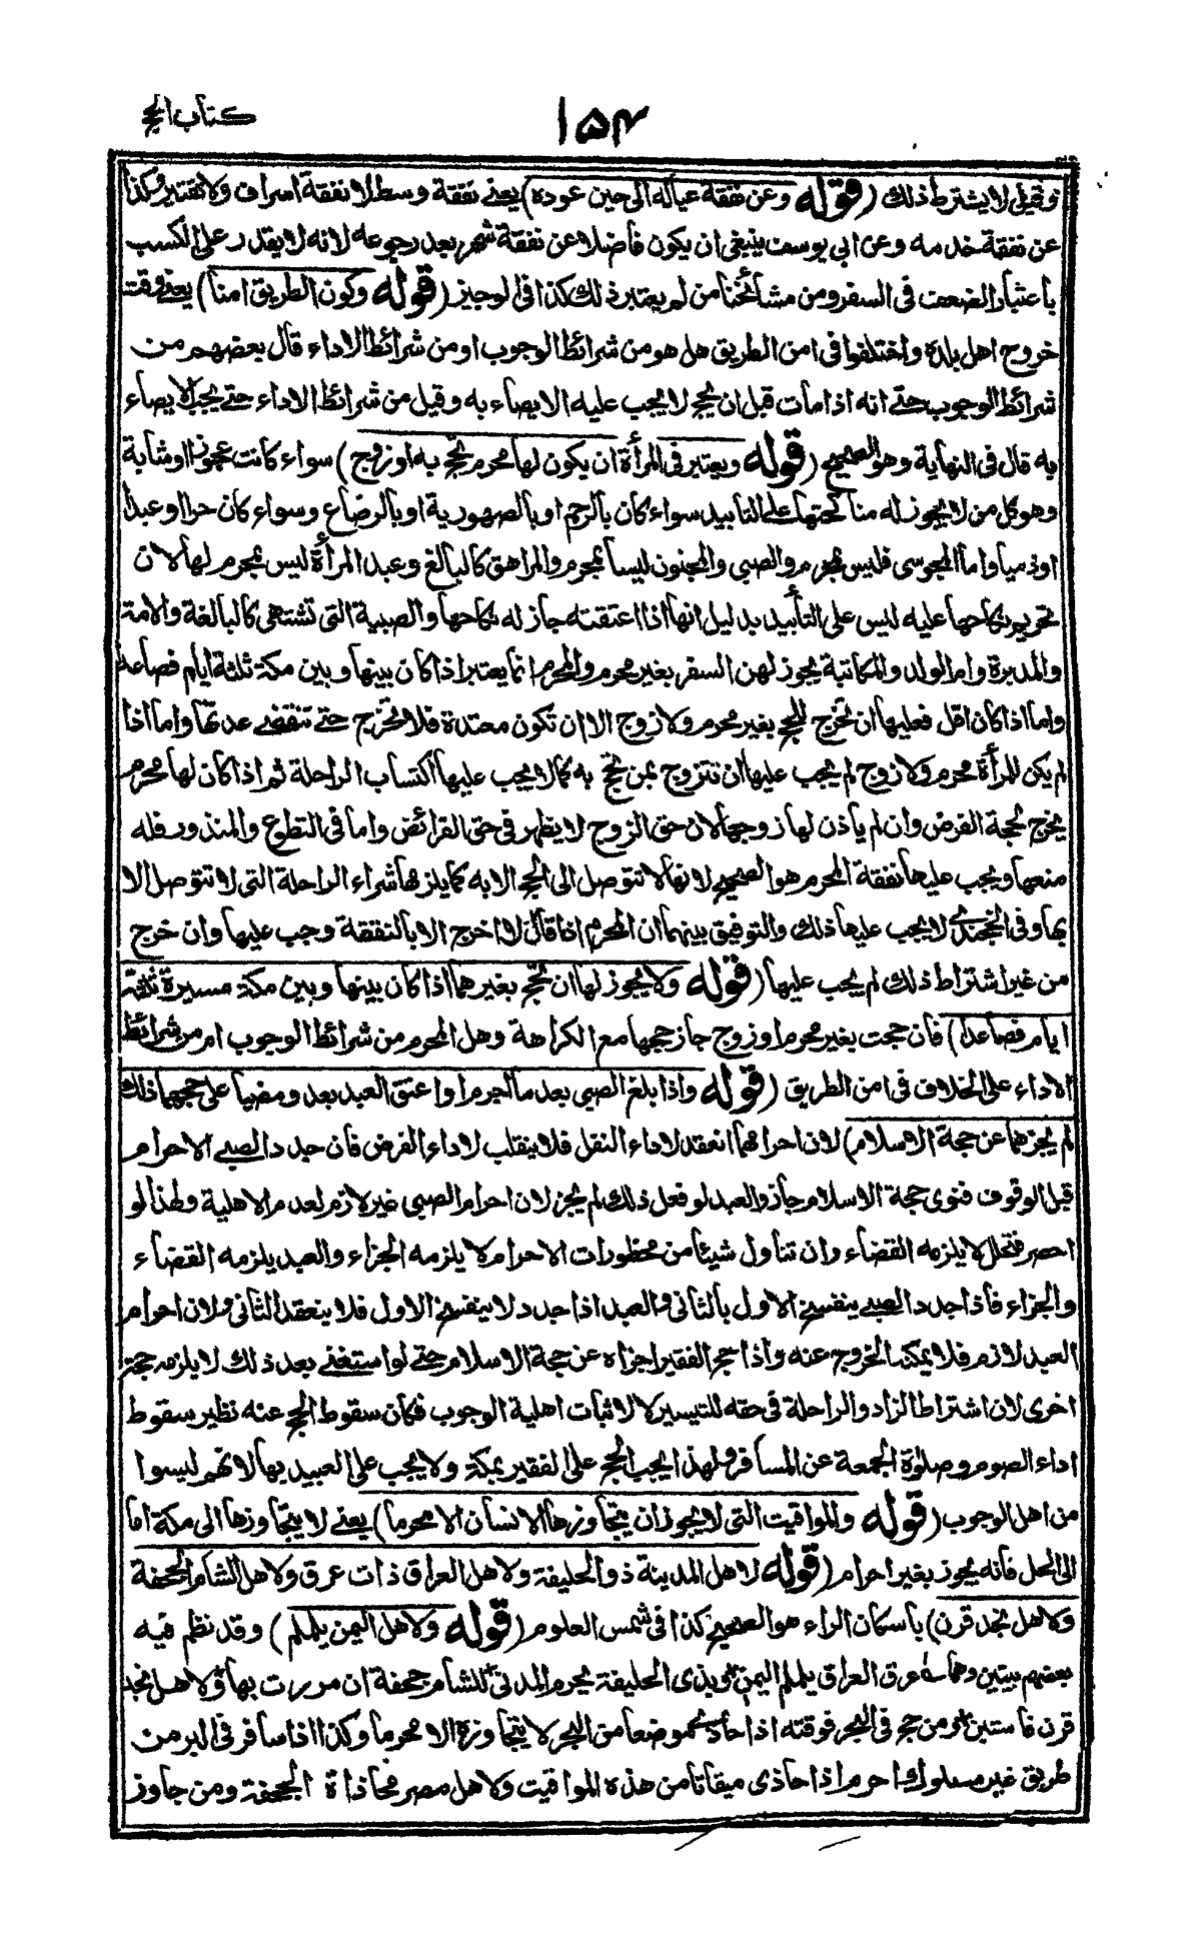 كتاب الحج
١٥٤
وقيل لا يشترط ذلك (قوله وعن نفقة عياله الى حين عوده) يعني نفقة وسط لا نفقة اسراف ولا تقتير وكذا
عن نفقة خدمه وعن ابي يوسف ينبغي ان يكون فاضلا عن نفقة شهر بعد رجوعه لانه لا يقدر على الكسب
باعتبار الضعف في السفر ومن مشائخنا من لم يعتبر ذلك كذا في الوجيز (قوله وكون الطريق امنا) يعني وقت
خروج اهل بلده واختلفوا في امن الطريق هل هو من شرائط الوجوب او من شرائط الاداء قال بعضهم من
شرائط الوجوب حتى انه اذا مات قبل ان يحج لا يجب عليه الايصاء به وقيل من شرائط الاداء حتى يجب الايصاء
به قال في النهاية وهو الصحيح (قوله ويعتبر في المرأة ان يكون لها محرم تحج به او زوج) سواء كانت عجوزا او شابة
وهو كل من لا يجوز له مناكحتها على التابيد سواء كان بالرحم او بالصهورية او بالرضاع وسواء كان حرا او عبدا
او ذميا واما المجوسى فليس بمحرم والصبي والمجنون ليسا بمحرم والمراهق كالبالغ وعبد المرأة ليس بمحرم لها لان
تحريم نكاحها عليه ليس على التأبيد بدليل انها اذا اعتقته جاز له نكاحها والصبية التي تشتهى كالبالغة والامة
والمدبرة وام الولد والمكاتبة يجوز لهن السفر بغير محرم والمحرم انما يعتبر اذا كان بينها وبين مكة ثلثة ايام فصاعدا
واما اذا كان اقل فعليها ان تخرج للحج بغير محرم ولا زوج الا ان تكون معتدة فلا تخرج حتى تنقضى عدتها واما اذا
لم يكن للمرأة محرم ولا زوج لم يجب عليها ان تتزوج بمن يحج به كما لا يجب عليها اكتساب الراحلة ثم اذا كان لها محرم
يخرج لحجة الفرض وان لم يأذن لها زوجها لان حق الزوج لا يظهر في حق الفرائض واما في التطوع والمنذور فله
منعها ويجب عليها نفقة المحرم هو الصحيح لانها لا تتوصل الى الحج الا به كما يلزمها شراء الراحلة التي لا تتوصل الا
بها وفى الخجندى لا يجب عليها ذلك والتوفيق بينهما ان المحرم اذا قال لا اخرج الا بالنفقة وجب عليها وان خرج
من غير اشتراط ذلك لم يجب عليها (قوله ولا يجوز لها ان تحج بغيرهما اذا كان بينها وبين مكة مسيرة ثلثة
ايام فصاعدا) فان حجت بغير محرم او زوج جاز حجها مع الكراهة وهل المحرم من شرائط الوجوب ام من شرائط
الاداء على الخلاف في امن الطريق (قوله واذا بلغ الصبى بعد ما احرم او اعتق العبد بعد ومضيا على حجهما ذلك
لم يجزهما عن حجة الاسلام) لان احرامهما انعقد لاداء النفل فلا ينقلب لاداء الفرض فان جدد الصبى الاحرام
قبل الوقوف فنوى حجة الاسلام جاز والعبد لو فعل ذلك لم يجز لان احرام الصبى غير لازم لعدم الاهلية ولهذا لو
احصر فتحلل لا يلزمه القضاء وان تناول شيئا من محظورات الاحرام لا يلزمه الجزاء والعبد يلزمه القضاء
والجزاء فاذا جدد الصبى ينفسخ الاول بالثانى والعبد اذا جدد لا ينفسخ الاول فلا ينعقد الثانى ولان احرام
العبد لازم فلا يمكنه الخروج عنه واذا حج الفقير اجزاه عن حجة الاسلام حتى لو استغنى بعد ذلك لا يلزمه حجة
اخرى لان اشتراط الزاد والراحلة في حقه للتيسير لا لاثبات اهلية الوجوب فكان سقوط الحج عنه نظير سقوط
اداء الصوم وصلوة الجمعة عن المسافر ولهذا يجب الحج على الفقير بمكة ولا يجب على العبيد بها لانهم ليسوا
من اهل الوجوب (قوله والمواقيت التى لا يجوز ان يتجاوزها الانسان الا محرما) يعنى لا يتجاوزها الى مكة اما
الى الحل فانه يجوز بغير احرام (قوله لاهل المدينة ذو الحليفة ولاهل العراق ذات عرق ولاهل الشام الجحفة
ولاهل نجد قرن) باسكان الراء هو الصحيح كذا في شمس العلوم (قوله ولاهل اليمن يلملم) وقد نظم فيه
بعضهم بيتين وهما عرق العراق يلملم اليمن وبذى الحليفة يحرم المدنى للشام جحفة ان مررت بها ولاهل نجد
قرن فاستبن ومن حج في البحر فوقته اذا حاذى موضعا من البحر لا يتجاوزه الا محرما وكذا اذا سافر في البر من
طريق غير مسلوك احرم اذا حاذى ميقاتا من هذه المواقيت ولاهل مصر فحاذاة الجحفة ومن جاوز